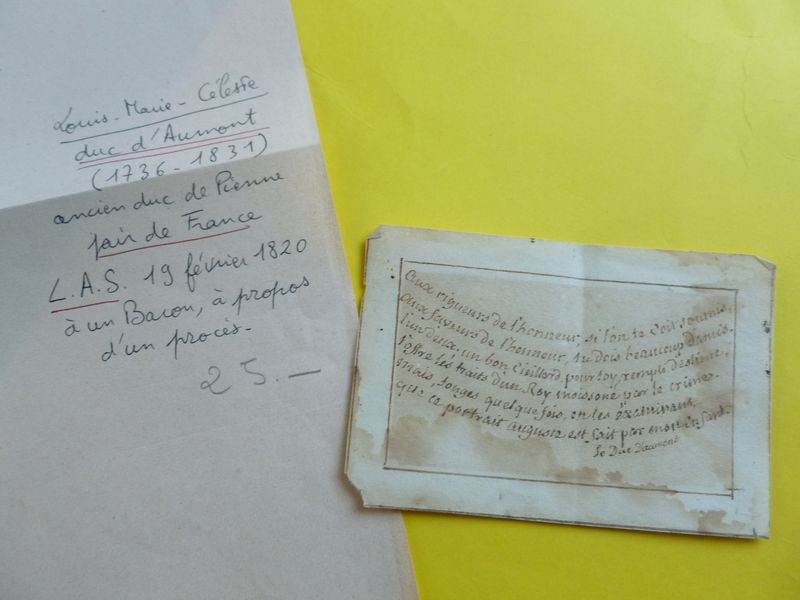 Louis-Marie-Céleste
duc d'Aumont
(1736-1831)
ancien duc de Pienne
pair de France
L.A.S. 19 février 1820
à un Baron, à propos
d'un procès.
25.—
aux rigueurs de l'honneur, si l'on te voit soumis,
aux faveurs de l'honneur, tu dois beaucoup d'amis.
l'un d'eux, un bon vieillard, pour toy, rempli d'estime,
t'offre les traits d'un Roy moissoné par le crime.
mais, songes quelque fois, en les examinant,
que ce portrait auguste est fait par mon enfant.
le Duc d'aumont